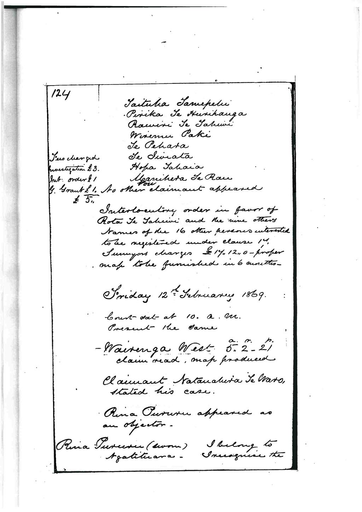 124
Taituha Tamepehi
Pirika Te Hurihanga
Rawiri Te Tahiwi
Wiremu Paki
Te Pehara
Te Tiwiata
Hopa Tahaia
Manihera Te Rau
Fees charged
Investigation £3.
Int. order £1
G. Grant £1.
£5.
No other claimant appeared
Interlocutory order in favor of
Rota Te Tahiwi and the nine others
Names of the 16 other persons interested
to be registered under clause 17.
Surveyors charges £17.12.0 - proper
map to be furnished in 6 months.
Friday 12th February 1869.
Court sat at 10. a. m.
Present the same
- Wairenga West a. r. p. 5. 2. 21
claim read. map produced
Claimant Natanahira Te
stated his case.
Riria Pururu appeared as
an objector.
Riria Pururu (sworn) I belong to
Ngatituara - I recognise the